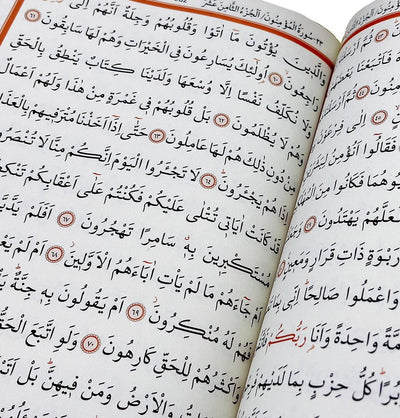 ٢٣ سُورَةُ الْمُؤْمِنُونَ / الْجُزْءُ الثَّامِنَ عَشَرَ
وَالَّذِينَ يُؤْتُونَ مَا اٰتَوْا وَقُلُوبُهُمْ وَجِلَةٌ اَنَّهُمْ اِلٰى
رَاجِعُونَ ٦٠ اُولٰئِكَ يُسَارِعُونَ فِي الْخَيْرَاتِ وَهُمْ لَهَا سَابِقُونَ ٦١
وَلَا نُكَلِّفُ نَفْسًا اِلَّا وُسْعَهَا وَلَدَيْنَا كِتَابٌ يَنْطِقُ بِالْحَقِّ
وَهُمْ لَا يُظْلَمُونَ ٦٢ بَلْ قُلُوبُهُمْ فِي غَمْرَةٍ مِنْ هٰذَا وَلَهُمْ اَعْمَالٌ
مِنْ دُونِ ذٰلِكَ هُمْ لَهَا عَامِلُونَ ٦٣ حَتّٰى اِذَا اَخَذْنَا مُتْرَفِيهِمْ بِالْعَذَا
اِذَا هُمْ يَجْـَٔرُونَ ٦٤ لَا تَجْـَٔرُوا الْيَوْمَ اِنَّكُمْ مِنَّا لَا تُنْصَرُو
قَدْ كَانَتْ اٰيَاتِي تُتْلٰى عَلَيْكُمْ فَكُنْتُمْ عَلٰى اَعْقَابِكُمْ
مُسْتَكْبِرِينَ بِهِ سَامِرًا تَهْجُرُونَ ٦٧ اَفَلَمْ
اَمْ جَاءَهُمْ مَا لَمْ يَأْتِ اٰبَاءَهُمُ الْاَوَّلِينَ ٦٨ اَمْ لَمْ
فَهُمْ لَهُ مُنْكِرُونَ ٦٩ اَمْ يَقُولُونَ بِهِ جِنَّةٌ
وَاَكْثَرُهُمْ لِلْحَقِّ كَارِهُونَ ٧٠ وَلَوِ اتَّبَعَ الْحَقُّ
وَالْاَرْضُ وَمَنْ فِيهِنَّ بَلْ
فَقَالُوا اَنُؤْمِنُ
فَكَانُوا مِنَ
لَعَلَّهُمْ يَهْتَدُونَ
رَبْوَةٍ ذَاتِ قَرَارٍ وَمَعِينٍ
وَاعْمَلُوا صَالِحًا اِنِّي
وَاحِدَةً وَاَنَا رَبُّكُمْ
كُلُّ حِزْبٍ بِمَا لَدَيْهِمْ